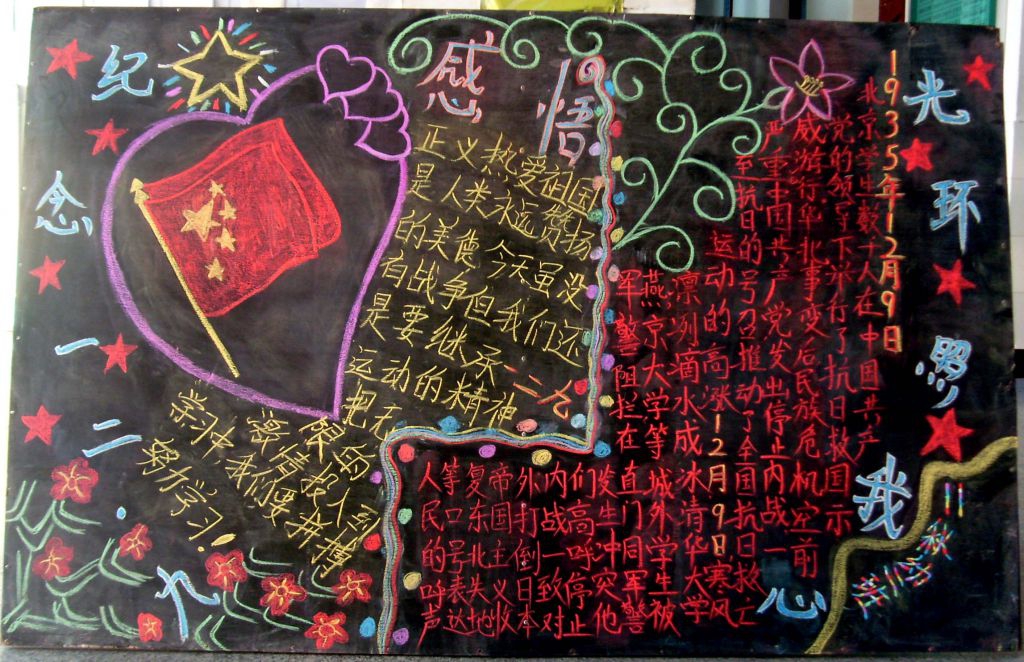 纪念一二·九
感悟
正义热爱祖国
是人类永远赞扬
的美德今天虽没
有战争但我们还
是要继承一二九
运动的精神
把无限的
激情投入到
学习中我们要拼搏
努力学习!
1935年12月9日
北京学生数千人在中国共产
党的领导下举行了抗日救国示
威游行华北事变后民族危机空前
严重中国共产党发出停止内战一
至抗日的号召推动了全国抗日救亡
运动的高涨12月9日寒风
凛冽滴水成冰清华大学
燕京大学等城外学生被
军警阻拦在直门同军警
发生冲突他
们高呼停止
内战一致对
外打倒日本
帝国主义收
复东北失地
等口号表达
人民的呼声
光环照我心